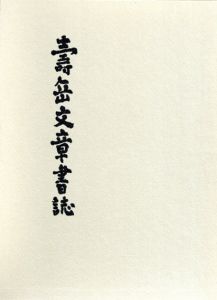 壽岳文章書誌